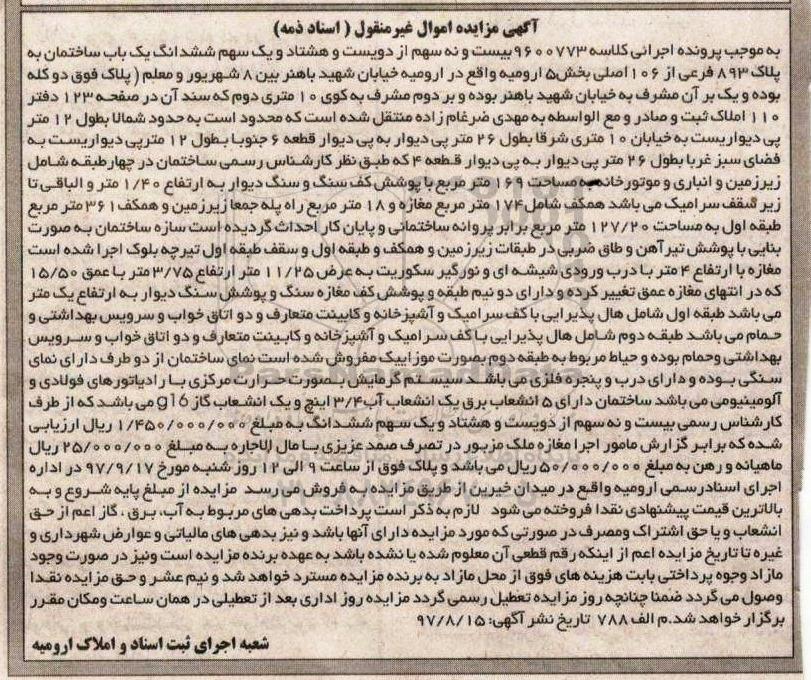 آگهی مزایده اموال غیرمنقول ( اسناد ذمه)
به موجب پرونده اجرائی کلاسه ۹۶۰۰۷۷۳ بیست و نه سهم از دویست و هشتاد و یک سهم ششدانگ یک باب ساختمان به
پلاک ۸۹۳ فرعی از ۱۰۶ اصلی بخش۵ ارومیه واقع در ارومیه خیابان شهید باهنر بین ۸ شهریور و معلم ( پلاک فوق دو کله
بوده و یک بر آن مشرف به خیابان شهید باهنر بوده و بر دوم مشرف به کوی ۱۰ متری دوم که سند آن در صفحه ۱۲۳ دفتر
۱۱۰ املاک ثبت و صادر و مع الواسطه به مهدی ضرغام زاده منتقل شده است که محدود است به حدود شمالا بطول ۱۲ متر
پی دیواریست به خیابان ۱۰ متری شرقا بطول ۲۶ متر پی دیوار به پی دیوار قطعه ۶ جنوبا بطول ۱۲ مترپی دیواریست به
فضای سبز غربا بطول ۲۶ متر پی دیوار به پی دیوار قطعه ۴ که طبق نظر کارشناس رسمی ساختمان در چهارطبقه شامل
زیرزمین و انباری و موتورخانه به مساحت ۱۶۹ متر مربع با پوشش کف سنگ و سنگ دیوار به ارتفاع ۱/۴۰ متر و الباقی تا
زیر سقف سرامیک می باشد همکف شامل ۱۷۴ متر مربع مغازه و ۱۸ متر مربع راه پله جمعا زیرزمین و همکف ۳۶۱ متر مربع
طبقه اول به مساحت ۱۲۷/۲۰ متر مربع برابر پروانه ساختمانی و پایان کار احداث گردیده است سازه ساختمان به صورت
بنایی با پوشش تیرآهن و طاق ضربی در طبقات زیرزمین و همکف و طبقه اول و سقف طبقه اول تیرچه بلوک اجرا شده است
مغازه با ارتفاع ۴ متر با درب ورودی شیشه ای و نورگیر سکوریت به عرض ۱۱/۲۵ متر ارتفاع ۳/۷۵ متر با عمق ۱۵/۵۰
که در انتهای مغازه عمق تغییر کرده و دارای دو نیم طبقه و پوشش کف مغازه سنگ و پوشش سنگ دیوار به ارتفاع یک متر
می باشد طبقه اول شامل هال پذیرایی با کف سرامیک و آشپزخانه و کابینت متعارف و دو اتاق خواب و سرویس بهداشتی و
حمام می باشد طبقه دوم شامل هال پذیرایی با کف سرامیک و آشپزخانه و کابینت متعارف و دو اتاق خواب و سرویس
بهداشتی وحمام بوده و حیاط مربوط به طبقه دوم بصورت موزاییک مفروش شده است نمای ساختمان از دو طرف دارای نمای
سنگی بوده و دارای درب و پنجره فلزی می باشد سیستم گرمایش بصورت حرارت مرکزی با رادیاتورهای فولادی و
آلومینیومی می باشد ساختمان دارای ۵ انشعاب برق یک انشعاب آب ۳/۴ اینچ و یک انشعاب گاز g16 می باشد که از طرف
کارشناس رسمی بیست و نه سهم از دویست و هشتاد و یک سهم ششدانگ به مبلغ ۱/۴۵۰/۰۰۰/۰۰۰ ریال ارزیابی
شده که برابر گزارش مامور اجرا مغازه ملک مزبور در تصرف صمد عزیزی با مال الاجاره به مبلغ ۲۵/۰۰۰/۰۰۰ ریال
ماهیانه و رهن به مبلغ ۵۰/۰۰۰/۰۰۰ ریال می باشد و پلاک فوق از ساعت ۹ الی ۱۲ روز شنبه مورخ ۹۷/۹/۱۷ در اداره
اجرای اسنادرسمی ارومیه واقع در میدان خیرین از طریق مزایده به فروش می رسد مزایده از مبلغ پایه شروع و به
بالاترین قیمت پیشنهادی نقدا فروخته می شود لازم به ذکر است پرداخت بدهی های مربوط به آب، برق ، گاز اعم از حق
انشعاب و یا حق اشتراک ومصرف در صورتی که مورد مزایده دارای آنها باشد و نیز بدهی های مالیاتی و عوارض شهرداری و
غیره تا تاریخ مزایده اعم از اینکه رقم قطعی آن معلوم شده یا نشده باشد به عهده برنده مزایده است ونیز در صورت وجود
مازاد وجوه پرداختی بابت هزینه های فوق از محل مازاد به برنده مزایده مسترد خواهد شد و نیم عشر و حق مزایده نقدا
وصول می گردد ضمنا چنانچه روز مزایده تعطیل رسمی گردد مزایده روز اداری بعد از تعطیلی در همان ساعت ومکان مقرر
برگزار خواهد شد.م الف ۷۸۸ تاریخ نشر آگهی: ۹۷/۸/۱۵
شعبه اجرای ثبت اسناد و املاک ارومیه
ParsNamadData